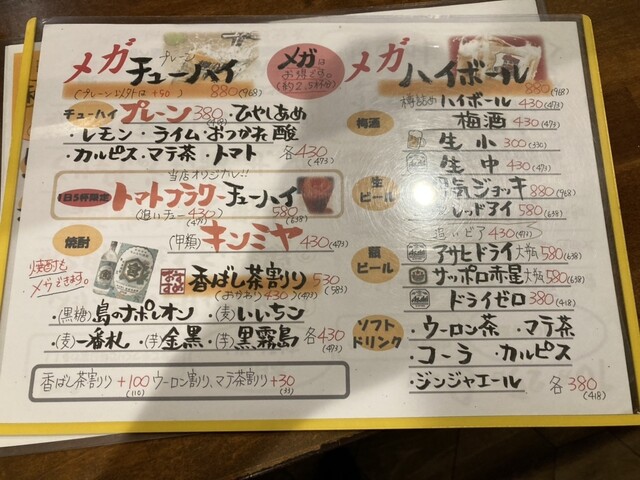 メガ チューハイ
プレーン
(プレーン以外は+50)
880(968)
メガは
お得です。
(約2.5杯分)
メガ ハイボール
880(968)
チューハイ プレーン 380 ひやしあめ
レモン・ライム・おつかれ酸
・カルピス・マテ茶・トマト 各430(473)
当店オリジナル!!
1日5杯限定 トマトフラワーチューハイ
(追いチュー430(473)) 580(638)
焼酎
(甲類) キンミヤ 430(473)
焼酎も
メガできます。
おすすめ 香ばし茶割り 530(583)
(おかわり430(473))
・(黒糖)島のナポレオン ・(麦)いいちこ
・(麦)一番札 ・(芋)金黒 ・(芋)黒霧島 各430(473)
香ばし茶割り+100(110) ウーロン割り、マテ茶割り+30(33)
樽詰め ハイボール 430(473)
梅酒 梅酒 430(473)
生 小 300(330)
生 中 430(473)
生ビール
ジョッキ 880(968)
レッドアイ 580(638)
追いビア 430(473)
瓶ビール
アサヒドライ 大瓶 580(638)
サッポロ赤星 大瓶 580(638)
ドライゼロ 380(418)
ソフトドリンク
・ウーロン茶 ・マテ茶
・コーラ ・カルピス
・ジンジャエール 各380(418)